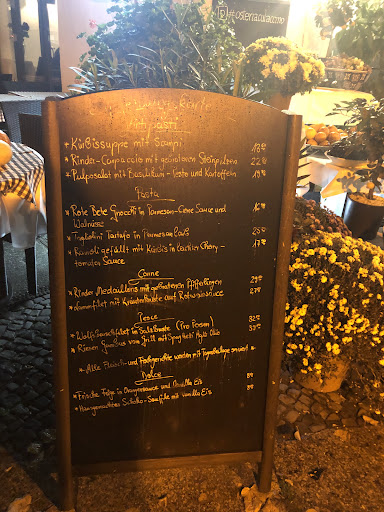 Antipasti
* Kürbissuppe mit Scampi 13.90
* Rinder-Carpaccio mit gebratenen Steinpilzen 22.90
* Pulposalat mit Basilikum-Pesto und Kartoffeln 19.90
Pasta
* Rote Bete Gnocchi in Parmesan-Creme Sauce und
Walnüsse
* Tagliolini Tartufo in Parmesan
* Ravioli gefüllt mit Kürbis in Cherry-
tomaten Sauce
Carne
* Rinder Medaillons mit gebratenen Pfifferlingen
* Lammfilet mit Kräuterkruste auf Rotweinsauce
Pesce
* Wolfsbarschfilet in Salzkruste (Pro Person)
* Riesen Gambas vom Grill mit Spaghetti Aglio Olio
* Alle Fleisch- und Fischgerichte werden mit Tagesbeilage serviert *
Dolce
* Frische Feige in Orangensauce und Vanille Eis
* Hausgemachtes Schoko-Souflé mit Vanille Eis